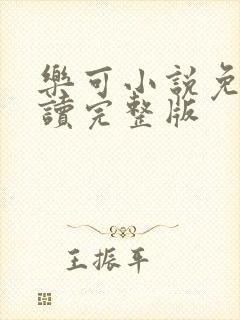 樂可小說免
讀完整版
王振平